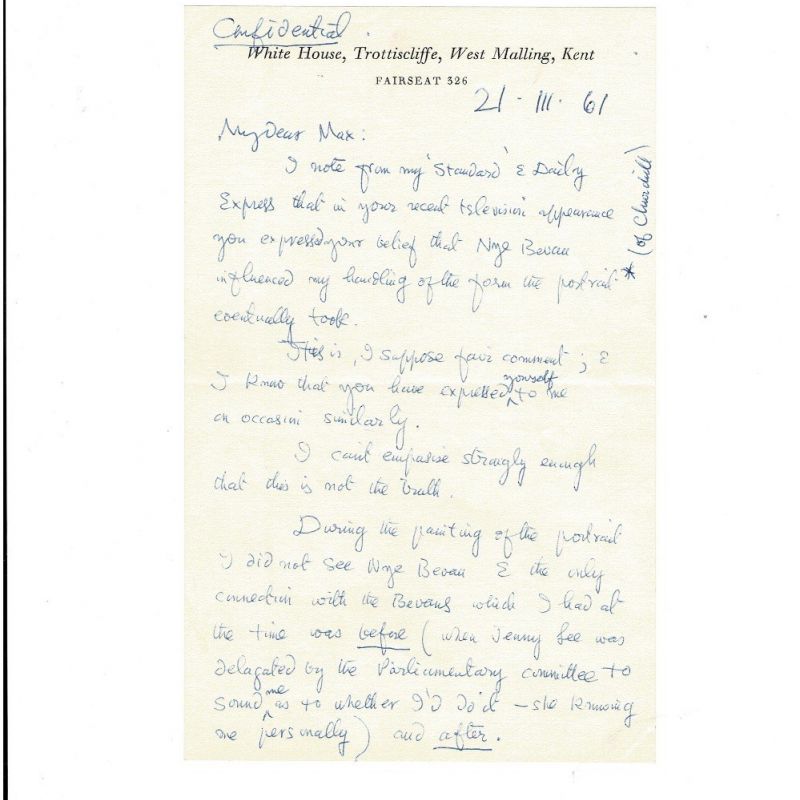 Confidential.
White House, Trottiscliffe, West Malling, Kent
FAIRSEAT 326
21 · III · 61
My dear Max:
I note from my 'Standard' & Daily
Express that in your recent television appearance
you expressed your belief that Nye Bevan
influenced my handling of the form the portrait * (of Churchill)
eventually took.
This is, I suppose fair comment; & 
I know that you have expressed yourself to me
on occasion similarly.
I can't empasise strongly enough
that this is not the truth.
During the painting of the portrait
I did not see Nye Bevan & the only
connection with the Bevans which I had at
the time was before (when Jenny Lee was
delagated by the Parliamentary committee to
sound me as to whether I'd do it – she knowing
me personally) and after.